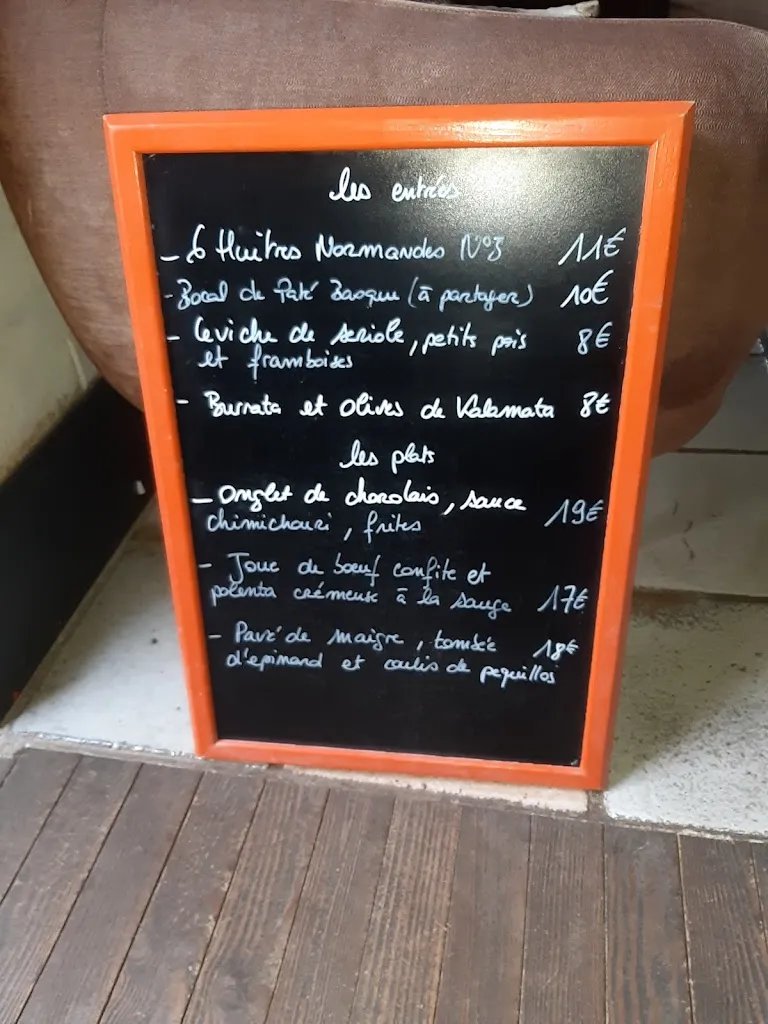 les entrées
- 6 Huîtres Normandes N°3 11€
- Bocal de Paté Basque (à partager) 10€
- Ceviche de seriole, petits pois 8€
et framboises
- Burrata et olives de Kalamata 8€
les plats
- Onglet de charolais, sauce
chimichouri, frites 19€
- Joue de boeuf confite et
polenta crémeuse à la sauge 17€
- Pavé de maigre, tombée 18€
d'epinard et coulis de pequillos